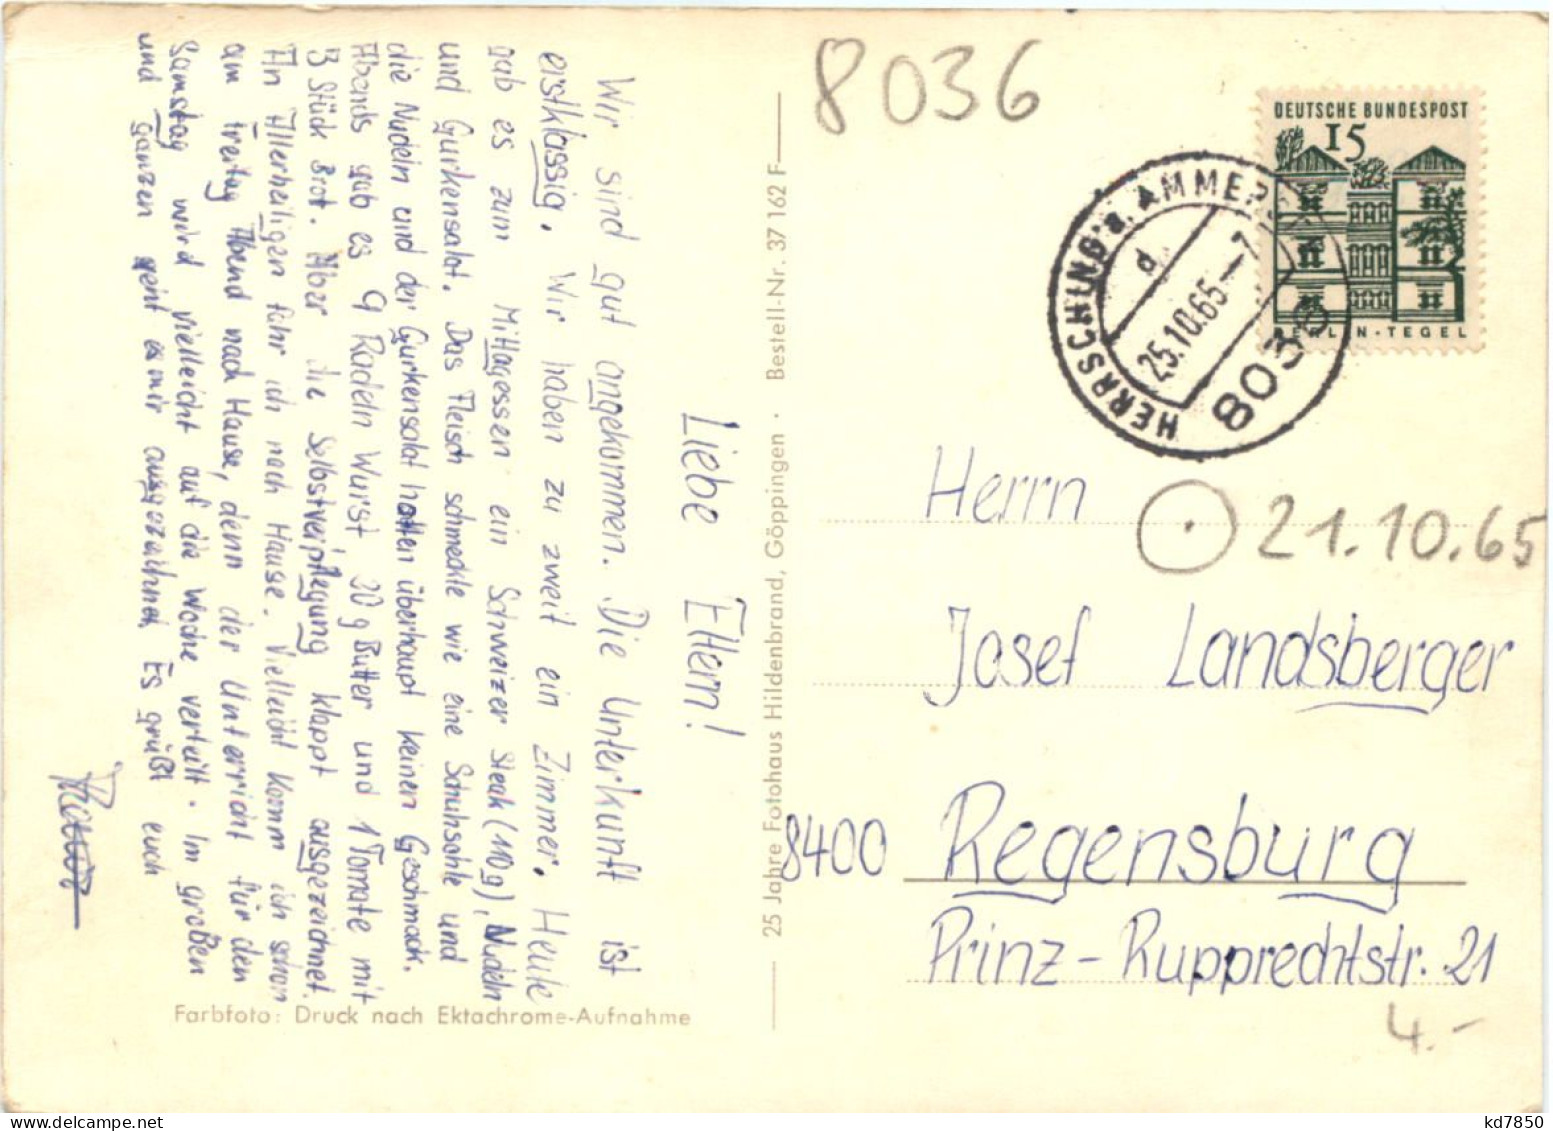 Liebe Eltern!
Wir sind gut angekommen. Die Unterkunft ist
erstklassig. Wir haben zu zweit ein Zimmer. Heute
gab es zum Mittagessen ein Schweizer Steak (110g), Nudeln
und Gurkensalat. Das Fleisch schmeckte wie eine Schuhsohle und
die Nudeln und der Gurkensalat hatten überhaupt keinen Geschmack.
Abends gab es 9 Radeln Wurst 20g Butter und 1 Tomate mit
3 Stück Brot. Aber die Selbstverpflegung klappt ausgezeichnet.
An Allerheiligen führ ich nach Hause. Vielleicht komm ich schon
am Freitag Abend nach Hause, denn der Unterricht für den
Samstag wird vielleicht auf die Woche verteilt. Im großen
und ganzen geht es mir ausgezeichnet Es grüßt euch
Farbfoto: Druck nach Ektachrome-Aufnahme
25 Jahre Fotohaus Hildenbrand, Göppingen · Bestell-Nr. 37 162 F
8036
DEUTSCHE BUNDESPOST
15
BERLIN-TEGEL
HERRSCHING a. AMMERSEE
d
25.10.65-7
8036
Herrn
21.10.65
Josef Landsberger
8400 Regensburg
Prinz-Rupprechtstr. 21
4.-
kd7850